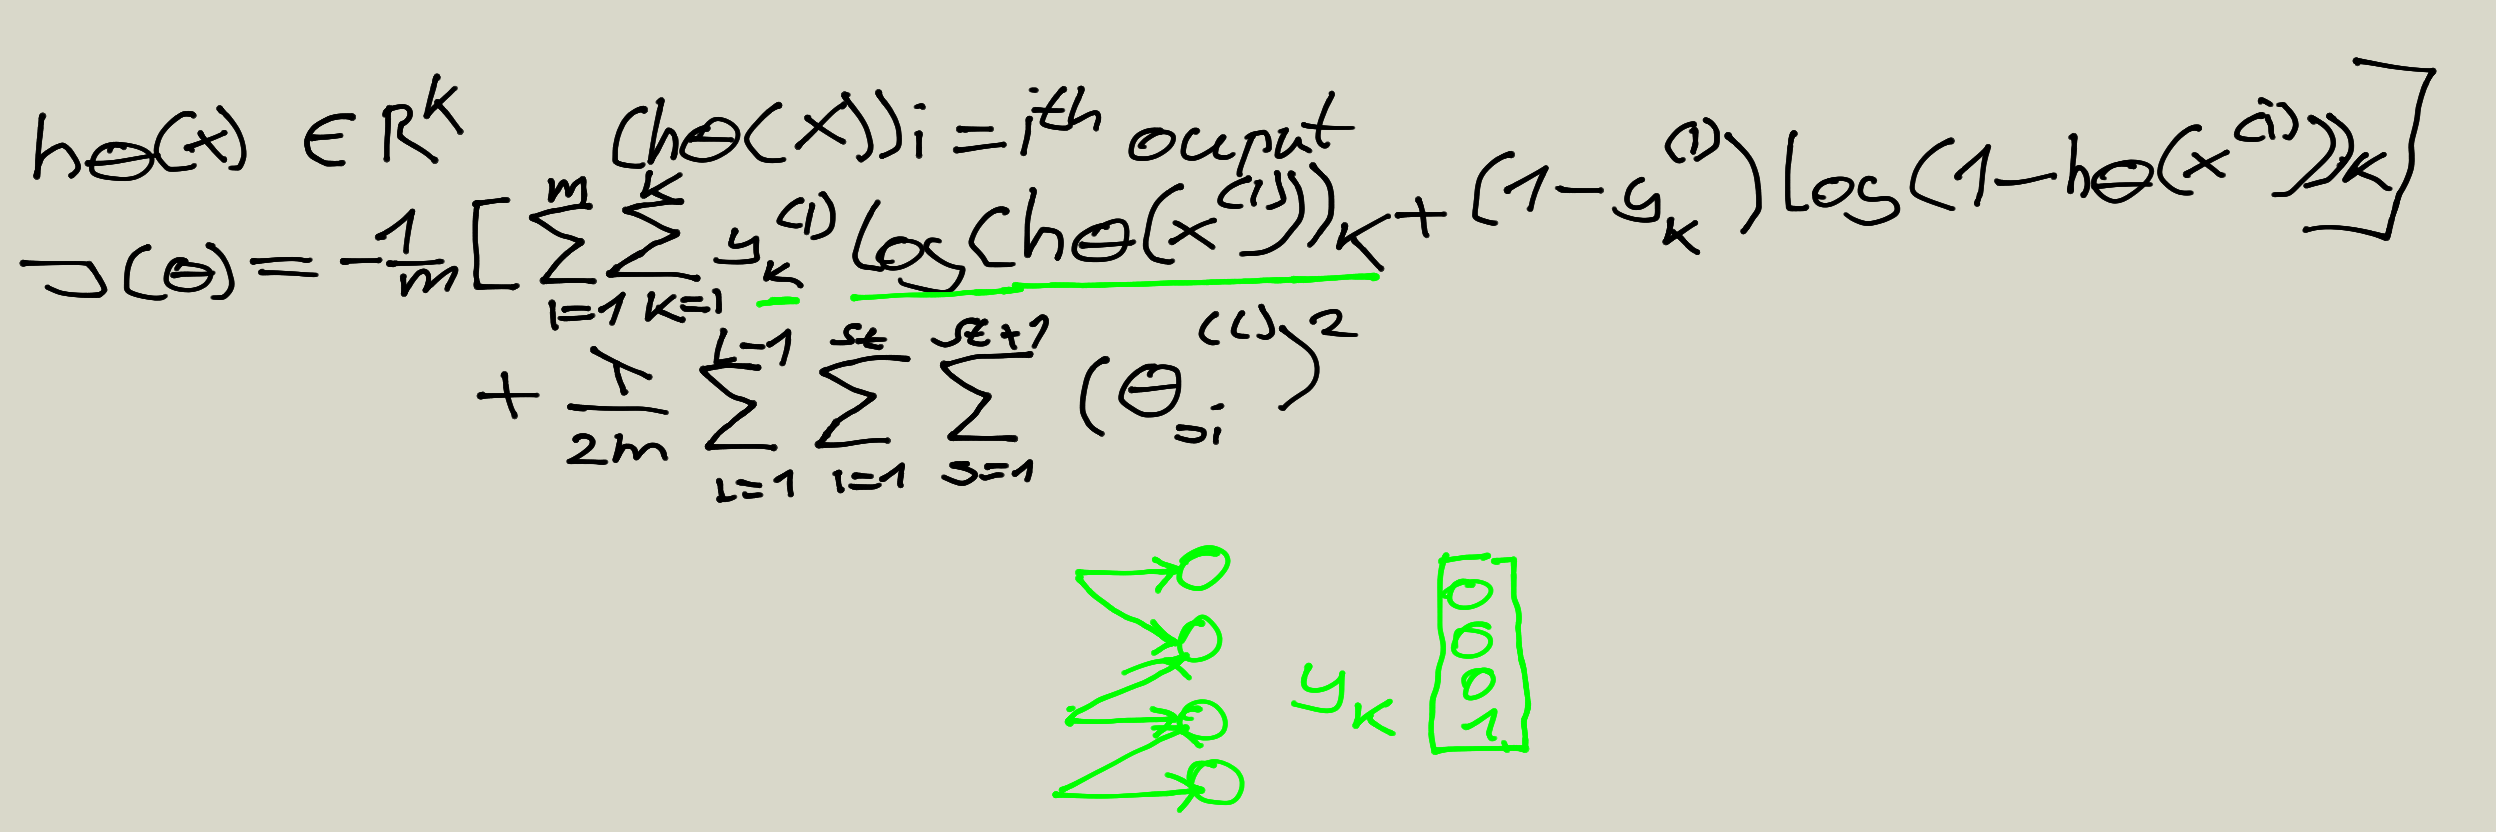 h_Θ(x) ∈ R^K (h_Θ(x))_i = ith output
J(Θ) = -1/m [ Σ_{i=1}^{m} Σ_{k=1}^{K} y_k^{(i)} log(h_Θ(x^{(i)}))_k + (1 - y_k^{(i)}) log(1 - h_Θ(x^{(i)}))_k ]
+ λ/2m Σ_{l=1}^{L-1} Σ_{i=1}^{s_l} Σ_{j=1}^{s_l+1} (Θ_{ji}^{(l)})^2
y_k
0
0
0
1